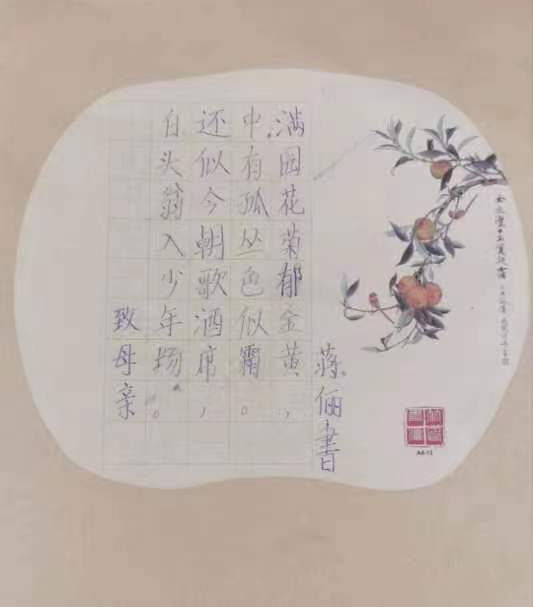 满园花菊郁金黄，
中有孤丛色似霜。
还似今朝歌酒席，
白头翁入少年场。
致母亲
蒋俪书
A4-13